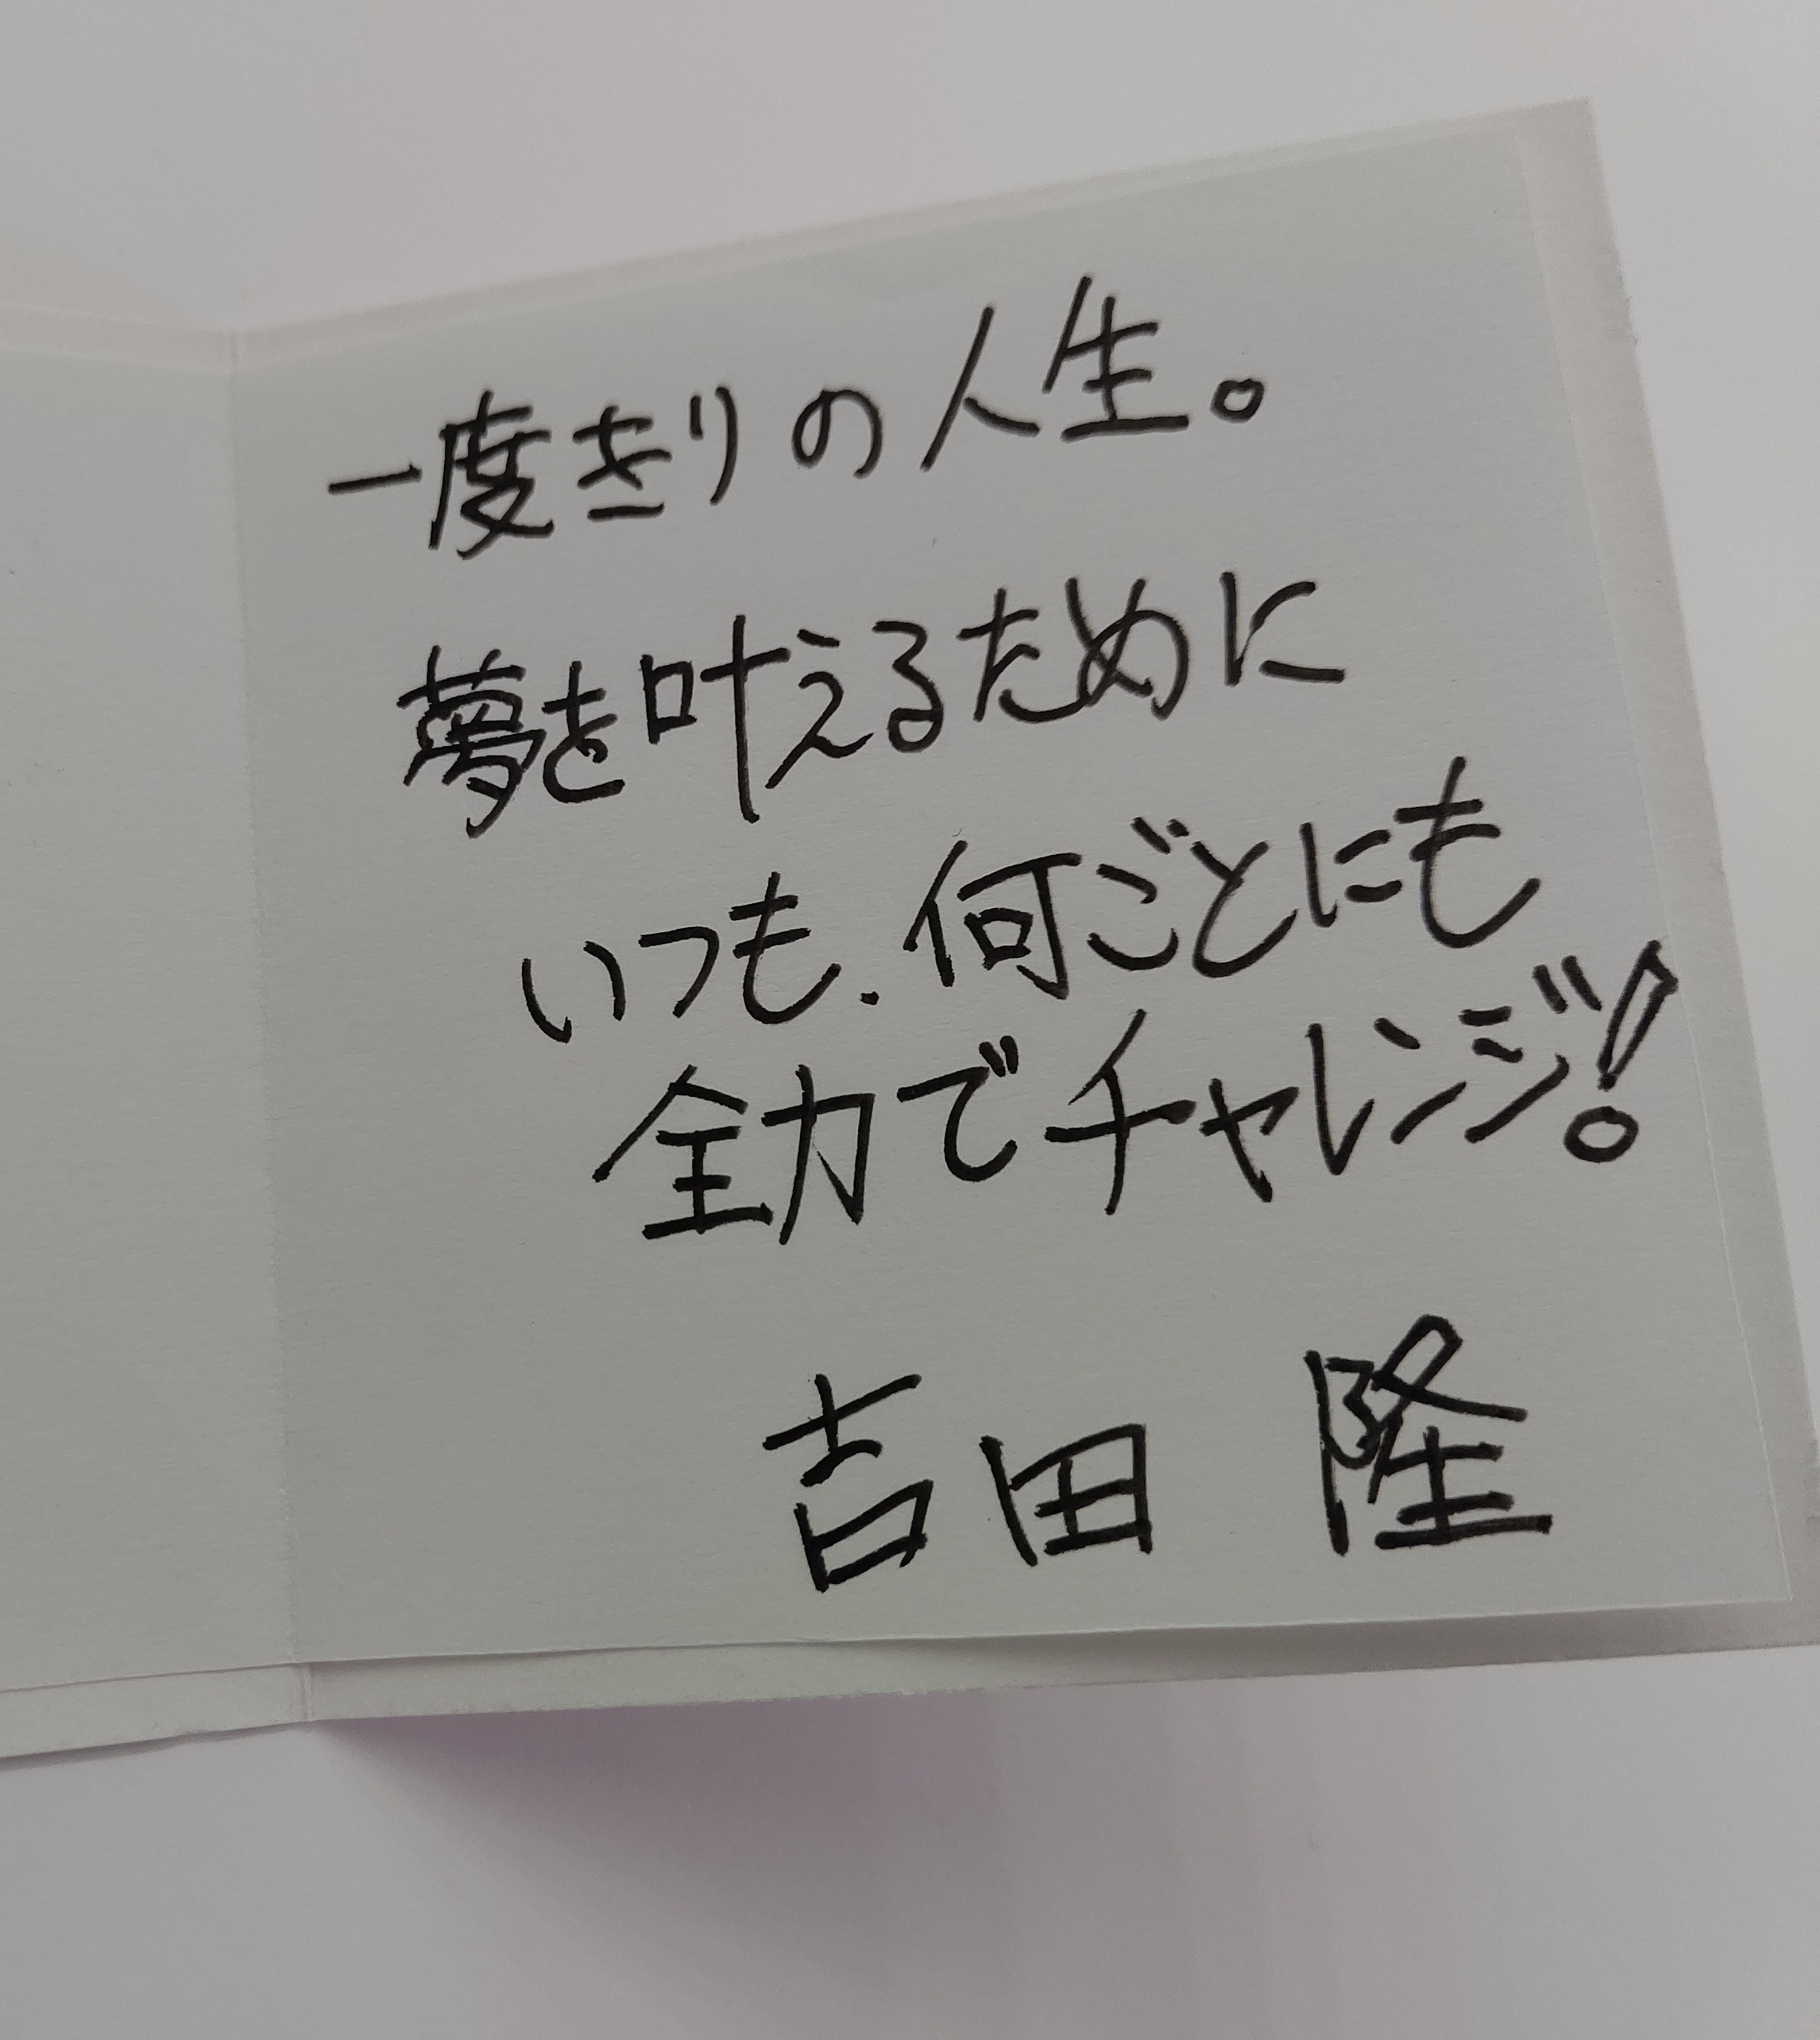 一度きりの人生。
夢を叶えるために
いつも.何ごとにも
全力でチャレンジ!
吉田 隆